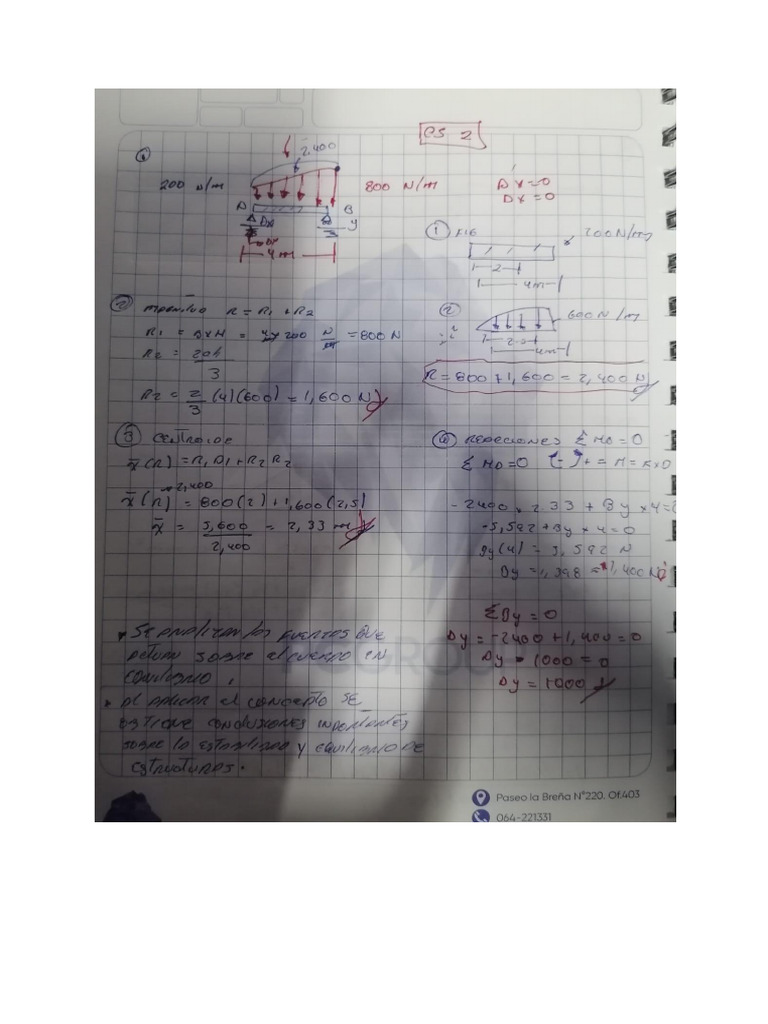 CS 2
①
2,400
200 N/m
800 N/m
A
B
y
4m
Ax=0
Ax=0
① FIG
200 N/m
2
4m
② R = R1 + R2
R1 = = 4 x 200 N/m = 800 N
R2 = 2ah
3
R2 = 2/3 (4)(600) = 1,600 N
②
600 N/m
4m
R = 800 + 1,600 = 2,400 N
③ CENTROIDE
x̄ (R) =
2,400
x̄ (R) = 800(2) + 1,600(2,5)
x̄ = 5,600 = 2,33 m
2,400
④ REACCIONES Σ MA = 0
Σ MA = 0
-2400 x 2.33 + By x 4 = 0
-5,592 + By x 4 = 0
By (4) = 5,592 N
By = 1,398 = 1,400 N
Ay = -2400 + 1,400 = 0
Ay - 1000 = 0
Ay = 1000
* SE ANALIZAN LOS FUERZAS QUE
ACTUAN SOBRE el CUERPO EN
* AL APLICAR el CONCEPTO SE
OBTIENE CONCLUSIONES IMPORTANTES
SOBRE LA ESTABILIDAD y EQUILIBRIO DE
ESTRUCTURAS.
GROUP
Paseo la Breña N°220. Of.403
064-221331